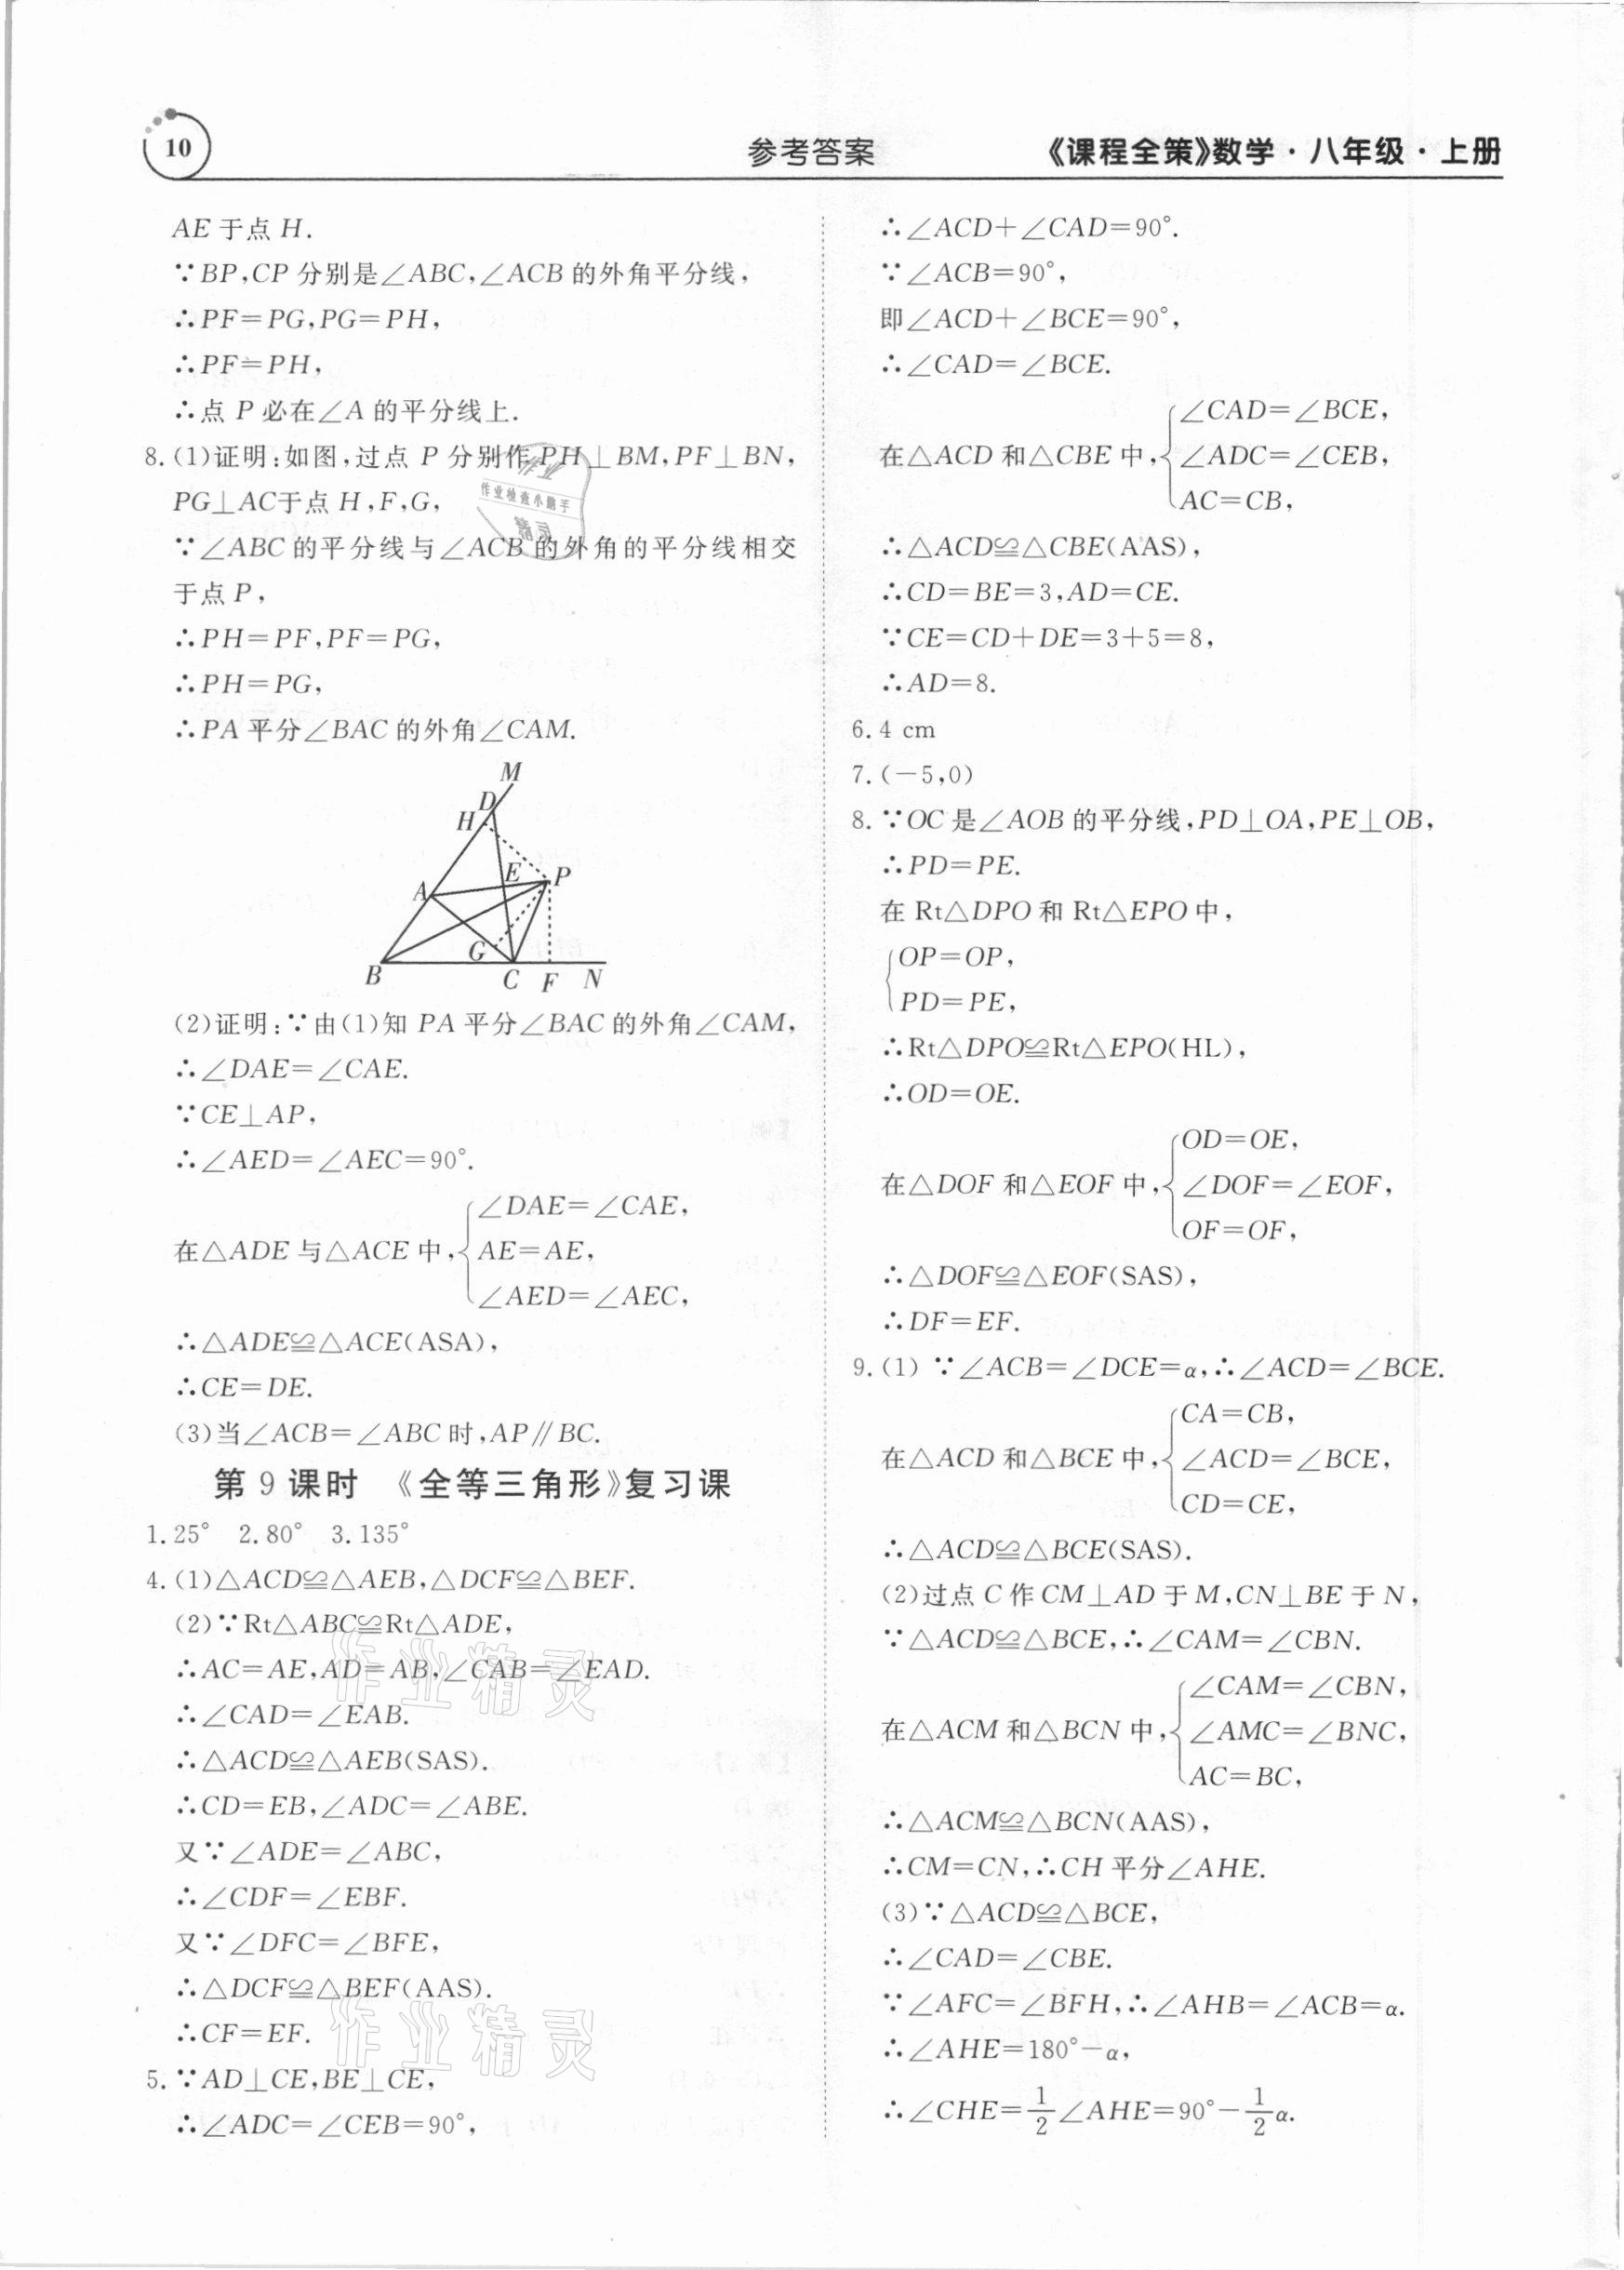 10
参考答案
《课程全策》数学·八年级·上册
AE于点H.
∵BP,CP分别是∠ABC,∠ACB的外角平分线,
∴PF=PG,PG=PH,
∴PF=PH,
∴点P必在∠A的平分线上.
8.(1)证明:如图,过点P分别作PH⊥BM,PF⊥BN,
PG⊥AC于点H,F,G,
∵∠ABC的平分线与∠ACB的外角的平分线相交
于点P,
∴PH=PF,PF=PG,
∴PH=PG,
∴PA平分∠BAC的外角∠CAM.
M
D
H
E
P
A
G
B
C
F
N
(2)证明:∵由(1)知PA平分∠BAC的外角∠CAM,
∴∠DAE=∠CAE.
∵CE⊥AP,
∴∠AED=∠AEC=90°.
∠DAE=∠CAE,
在△ADE与△ACE中,{AE=AE,
∠AED=∠AEC,
∴△ADE≌△ACE(ASA),
∴CE=DE.
(3)当∠ACB=∠ABC时,AP∥BC.
第9课时 《全等三角形》复习课
1.25° 2.80° 3.135°
4.(1)△ACD≌△AEB,△DCF≌△BEF.
(2)∵Rt△ABC≌Rt△ADE,
∴AC=AE,AD=AB,∠CAB=∠EAD.
∴∠CAD=∠EAB.
∴△ACD≌△AEB(SAS).
∴CD=EB,∠ADC=∠ABE.
又∵∠ADE=∠ABC,
∴∠CDF=∠EBF.
又∵∠DFC=∠BFE,
∴△DCF≌△BEF(AAS).
∴CF=EF.
5.∵AD⊥CE,BE⊥CE,
∴∠ADC=∠CEB=90°,
∴∠ACD+∠CAD=90°.
∵∠ACB=90°,
即∠ACD+∠BCE=90°,
∴∠CAD=∠BCE.
∠CAD=∠BCE,
在△ACD和△CBE中,{∠ADC=∠CEB,
AC=CB,
∴△ACD≌△CBE(AAS),
∴CD=BE=3,AD=CE.
∵CE=CD+DE=3+5=8,
∴AD=8.
6.4 cm
7.(-5,0)
8.∵OC是∠AOB的平分线,PD⊥OA,PE⊥OB,
∴PD=PE.
在Rt△DPO和Rt△EPO中,
{OP=OP,
PD=PE,
∴Rt△DPO≌Rt△EPO(HL),
∴OD=OE.
OD=OE,
在△DOF和△EOF中,{∠DOF=∠EOF,
OF=OF,
∴△DOF≌△EOF(SAS),
∴DF=EF.
9.(1) ∵∠ACB=∠DCE=α,∴∠ACD=∠BCE.
CA=CB,
在△ACD和△BCE中,{∠ACD=∠BCE,
CD=CE,
∴△ACD≌△BCE(SAS).
(2)过点C作CM⊥AD于M,CN⊥BE于N,
∵△ACD≌△BCE,∴∠CAM=∠CBN.
∠CAM=∠CBN,
在△ACM和△BCN中,{∠AMC=∠BNC,
AC=BC,
∴△ACM≌△BCN(AAS),
∴CM=CN,∴CH平分∠AHE.
(3)∵△ACD≌△BCE,
∴∠CAD=∠CBE.
∵∠AFC=∠BFH,∴∠AHB=∠ACB=α.
∴∠AHE=180°-α,
∴∠CHE=1/2∠AHE=90°-1/2α.
作业
作业检查小助手
精灵
作业精灵
作业精灵